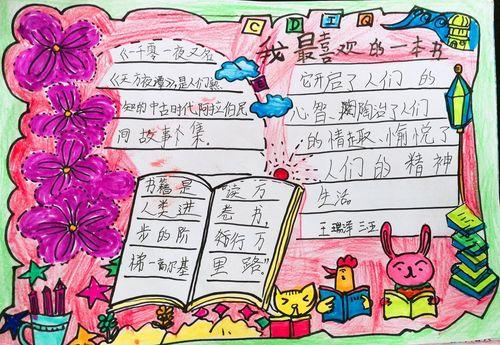 C D I Q
我最喜欢的一本书
《一千零一夜又名
《天方夜谭》,是人们熟
知的中古时代阿拉伯民
间故事集.
它开启了人们的
心智、陶冶了人们
的情趣、愉悦了
人们的精神
生活
三五
书籍是
人类进
步的阶
梯一高尔基
"读万
卷书,
行万
里路"